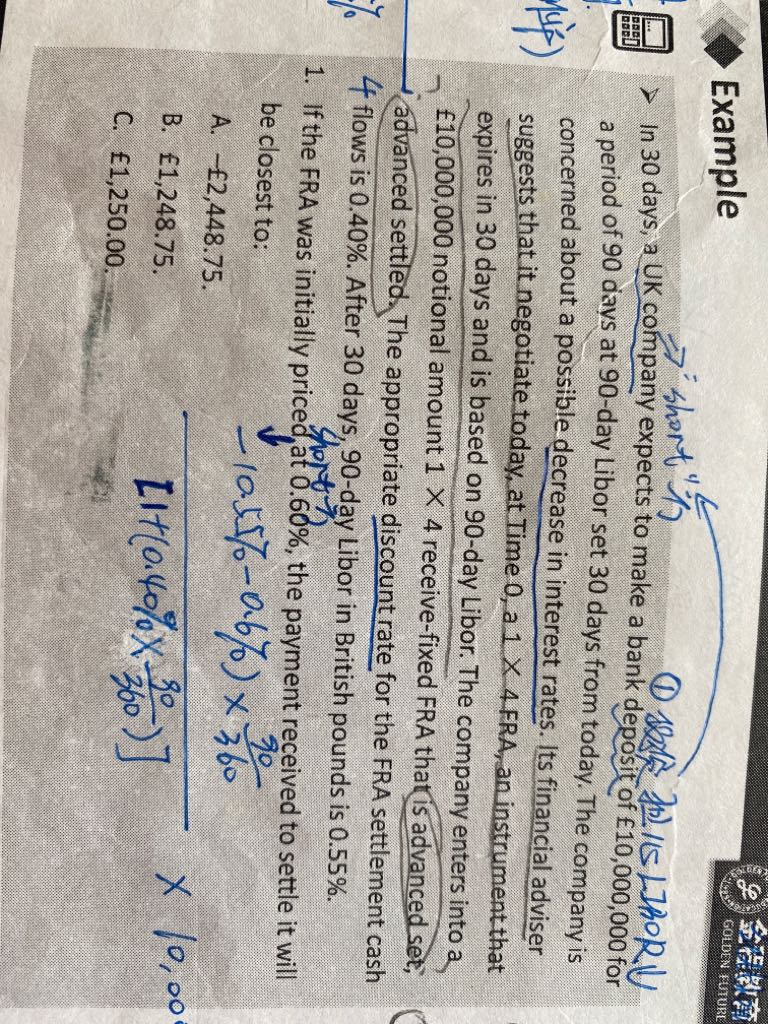 Example
GOLDEN FUTURE
① 和 LIBOR ↓
⇒ "short" 方
➢ In 30 days, a UK company expects to make a bank deposit of £10,000,000 for
a period of 90 days at 90-day Libor set 30 days from today. The company is
concerned about a possible decrease in interest rates. Its financial adviser
suggests that it negotiate today, at Time 0, a 1 × 4 FRA, an instrument that
expires in 30 days and is based on 90-day Libor. The company enters into a
£10,000,000 notional amount 1 × 4 receive-fixed FRA that is advanced set,
advanced settled. The appropriate discount rate for the FRA settlement cash
4 flows is 0.40%. After 30 days, 90-day Libor in British pounds is 0.55%.
short 方
1. If the FRA was initially priced at 0.60%, the payment received to settle it will
be closest to:
A. –£2,448.75.
B. £1,248.75.
C. £1,250.00.
-(0.55% - 0.6%) × 90/360
[1+(0.40% × 90/360)]
× 10,00